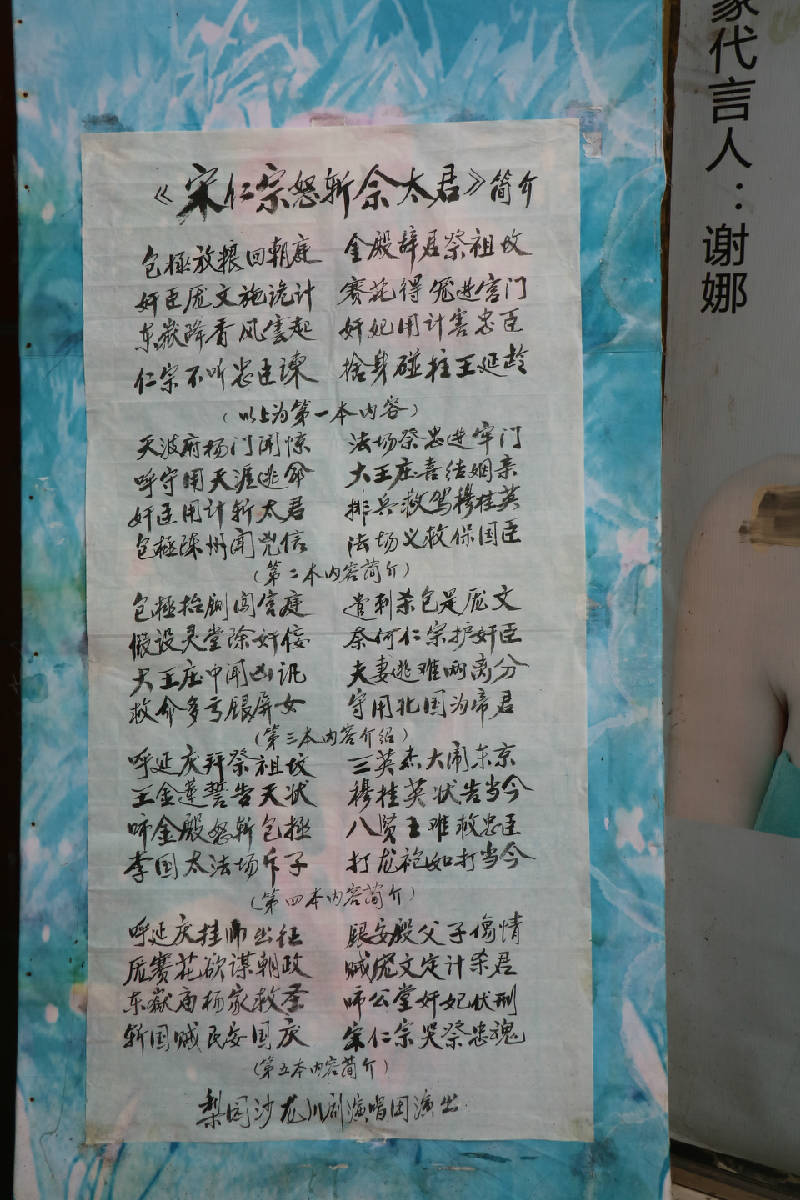 《宋仁宗怒斩佘太君》简介
包极放粮回朝庭 金殿辞君祭祖坟
奸臣庞文施诡计 赛花得宠进宫门
东嶽降香风雲起 奸妃用计害忠臣
仁宗不听忠臣諫 捨身碰柱王延龄
(以上为第一本内容)
天波府杨门闻惊 法场祭忠进牢门
呼守用天涯逃命 大王庄喜结姻亲
奸臣用计斩太君 排兵救驾穆桂英
包極陈州闻兇信 法场义救保国臣
(第二本内容简介)
包極抬鍘闯宫庭 遣刺杀包是庞文
假设灵堂除奸佞 奈何仁宗护奸臣
大王庄中闻凶讯 夫妻逃难两离分
救命多亏银屏女 守用北国为帝君
(第三本内容介绍)
呼延庆拜祭祖坟 三英杰大闹东京
王金莲誓告天状 穆桂英状告当今
啼金殿怒斩包極 八贤王难救忠臣
李国太法场斥子 打龙袍如打当今
(第四本内容简介)
呼延庆挂帅出征 银安殿父子傷情
庞赛花欲谋朝政 贼庞文定计杀君
东嶽庙杨家救圣 啼公堂奸妃伏刑
斩国贼民安国庆 宋仁宗哭祭忠魂
(第五本内容简介)
梨园沙龙川剧演唱团演出
家代言人：谢娜